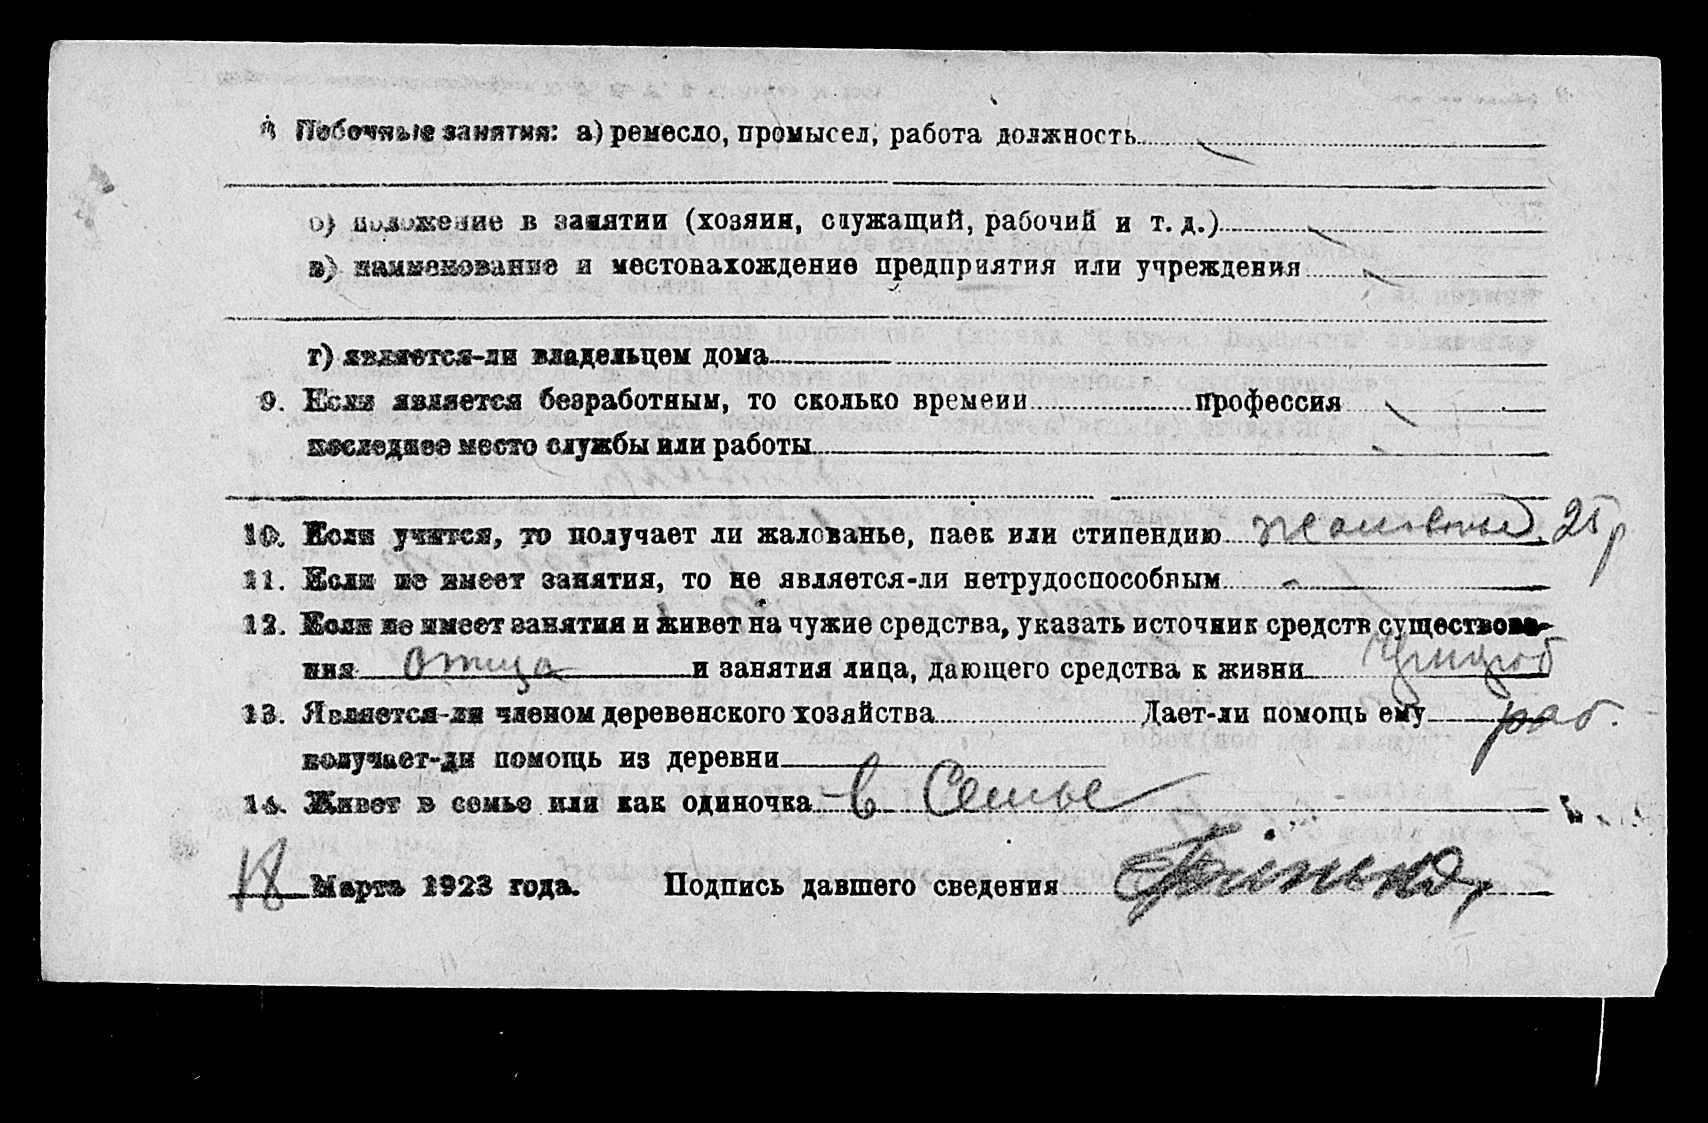 Побочные занятия: а) ремесло, промысел, работа должность
б) положение в занятии (хозяин, служащий, рабочий и т. д.)
в) наименование и местонахождение предприятия или учреждения
г) является-ли владельцем дома
9. Если является безработным, то сколько времени профессия
последнее место службы или работы
10. Если учится, то получает ли жалованье, паек или стипендию жалованье 25 р
11. Если не имеет занятия, то не является-ли нетрудоспособным -
12. Если не имеет занятия и живет на чужие средства, указать источник средств существова-
ния отца и занятия лица, дающего средства к жизни
13. Является-ли членом деревенского хозяйства Дает-ли помощь ему раб.
получает-ли помощь из деревни
14. Живет в семье или как одиночка в Семье
18 Марта 1923 года. Подпись давшего сведения